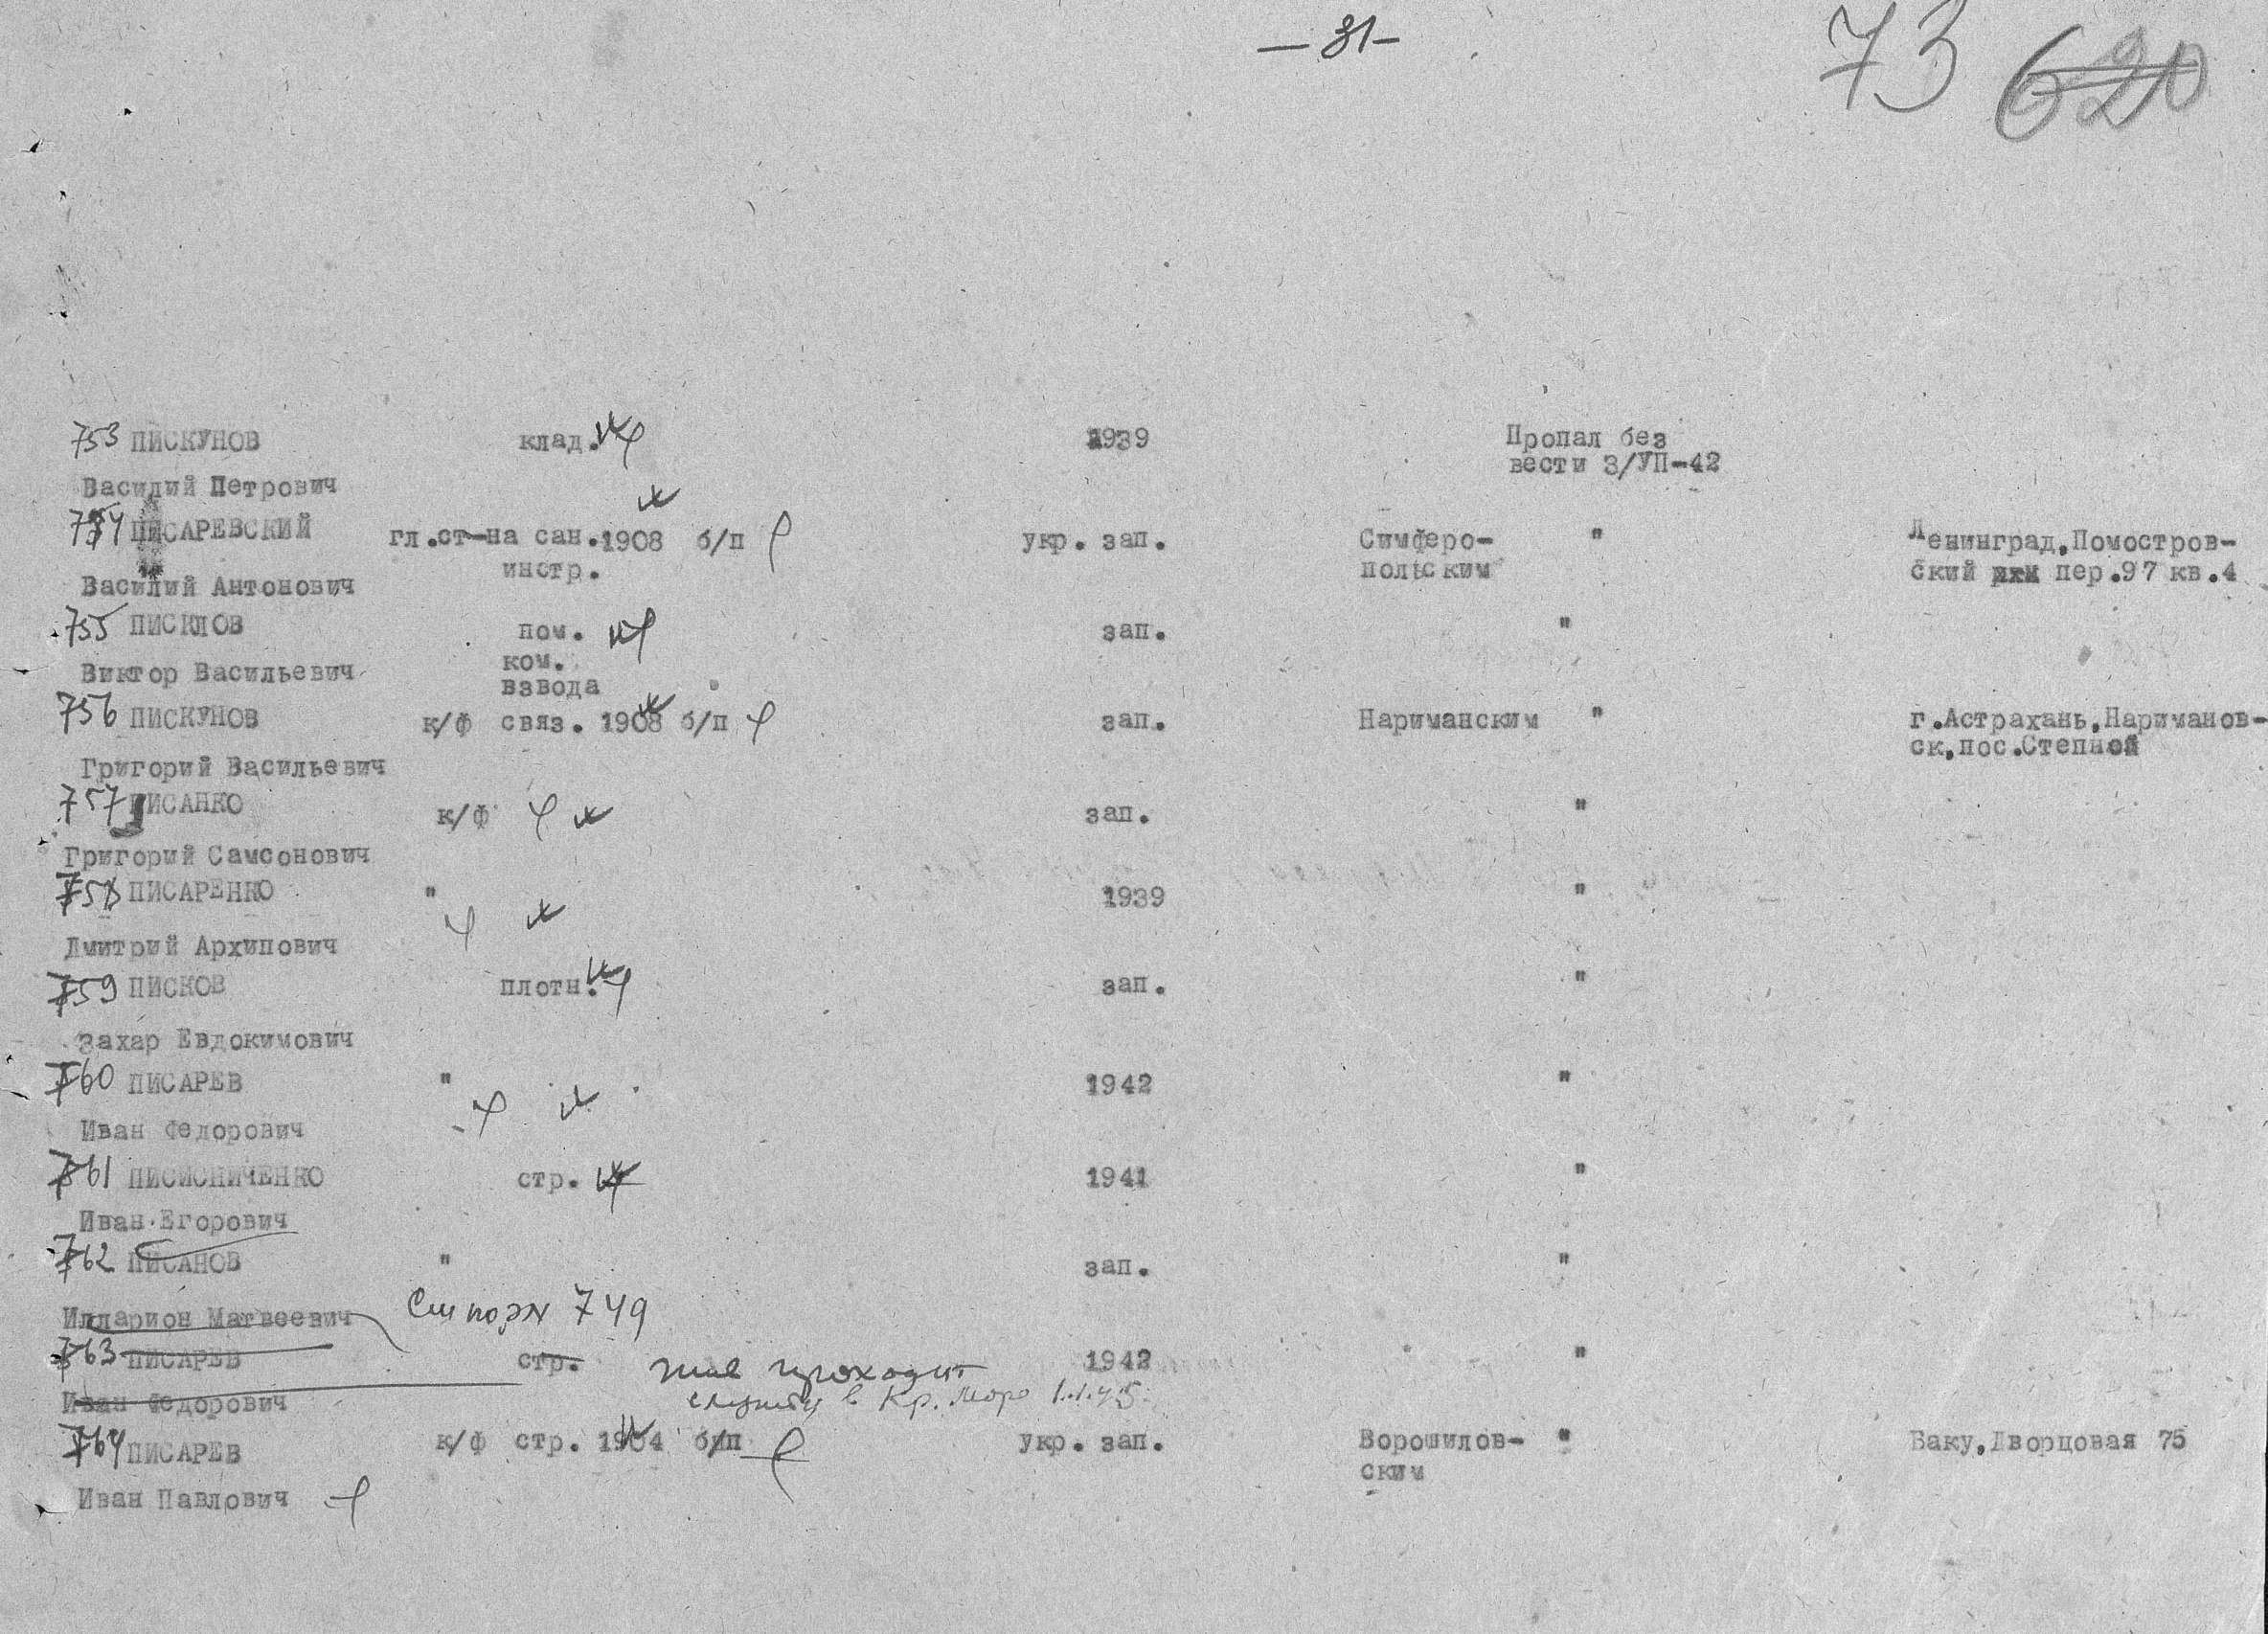 — 31 —
73 620
753 ПИСКУНОВ клад. 1939 Пропал без
вести 3/УП-42
Василий Петрович
754 ПИСАРЕВСКИЙ гл.ст-на сан. 1908 б/п укр. зап. Симферо- " Ленинград,Помостров-
инстр. польским ский пер.97 кв.4
Василий Антонович
755 ПИСКЛОВ пом. зап. "
ком.
Виктор Васильевич взвода
756 ПИСКУНОВ к/ф связ. 1908 б/п зап. Нариманским " г.Астрахань,Нариманов-
ск,пос.Степной
Григорий Васильевич
757 ПИСАНКО к/ф зап. "
Григорий Самсонович
758 ПИСАРЕНКО " 1939 "
Дмитрий Архипович
759 ПИСКОВ плотн. зап. "
Захар Евдокимович
760 ПИСАРЕВ " 1942 "
Иван Федорович
761 ПИСИСНИЧЕНКО стр. 1941 "
Иван Егорович
762 ПИСАНОВ " зап. "
Илларион Матвеевич См по № 749
763 ПИСАРЕВ стр. проходит 1942 "
Иван Федорович службу в 1.1.45
764 ПИСАРЕВ к/ф стр. 1904 б/п укр. зап. Ворошилов- " Баку,Дворцовая 75
ским
Иван Павлович